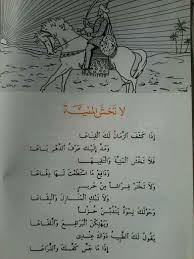 لَا تَخْشَ الْمَنِيَّةَ
إِذَا كَشَفَ الزَّمَانُ لَكَ الْقِنَاعَا
وَمَدَّ إِلَيْكَ صَرْفُ الدَّهْرِ بَاعَا
فَلَا تَخْشَ الْمَنِيَّةَ
وَدَافِعْ مَا اسْتَطَعْتَ لَهَا دِفَاعَا
وَلَا تَخْتَرْ فِرَاشًا مِنْ حَرِيرٍ
وَلَا تَبْكِ الْمَنَازِلَ وَالْبِقَاعَا
وَحَوْلَكَ نِسْوَةٌ يَنْدُبْنَ حُزْنًا
وَيَهْتِكْنَ الْبَرَاقِعَ وَاللِّفَاعَا
يَقُولُ لَكَ الطَّبِيبُ دَوَاكَ عِنْدِي
إِذَا مَا جَسَّ كَفَّكَ وَالذِّرَاعَا